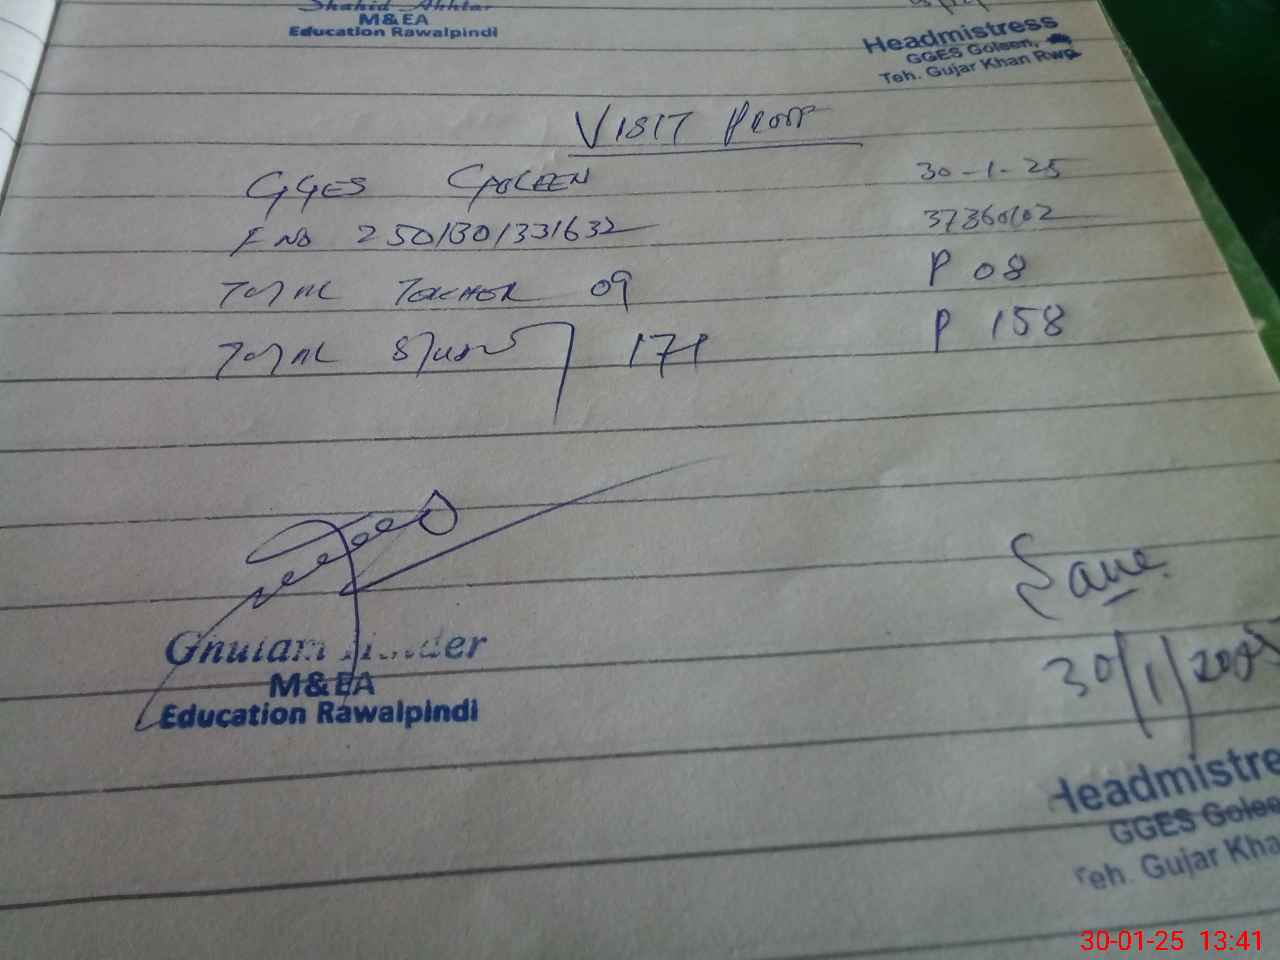 Shahid Akhtar
M&EA
Education Rawalpindi
Headmistress
GGES Goleen,
Teh. Gujar Khan Rwp
VISIT PROOF
GGES GOLEEN 30-1-25
F NO 2501301331632 37360102
TOTAL TEACHER 09 P 08
TOTAL STUDENT 171 P 158
Ghulam
M&EA
Education Rawalpindi
30/1/2025
Headmistre
GGES Golee
Teh. Gujar Kha
30-01-25 13:41